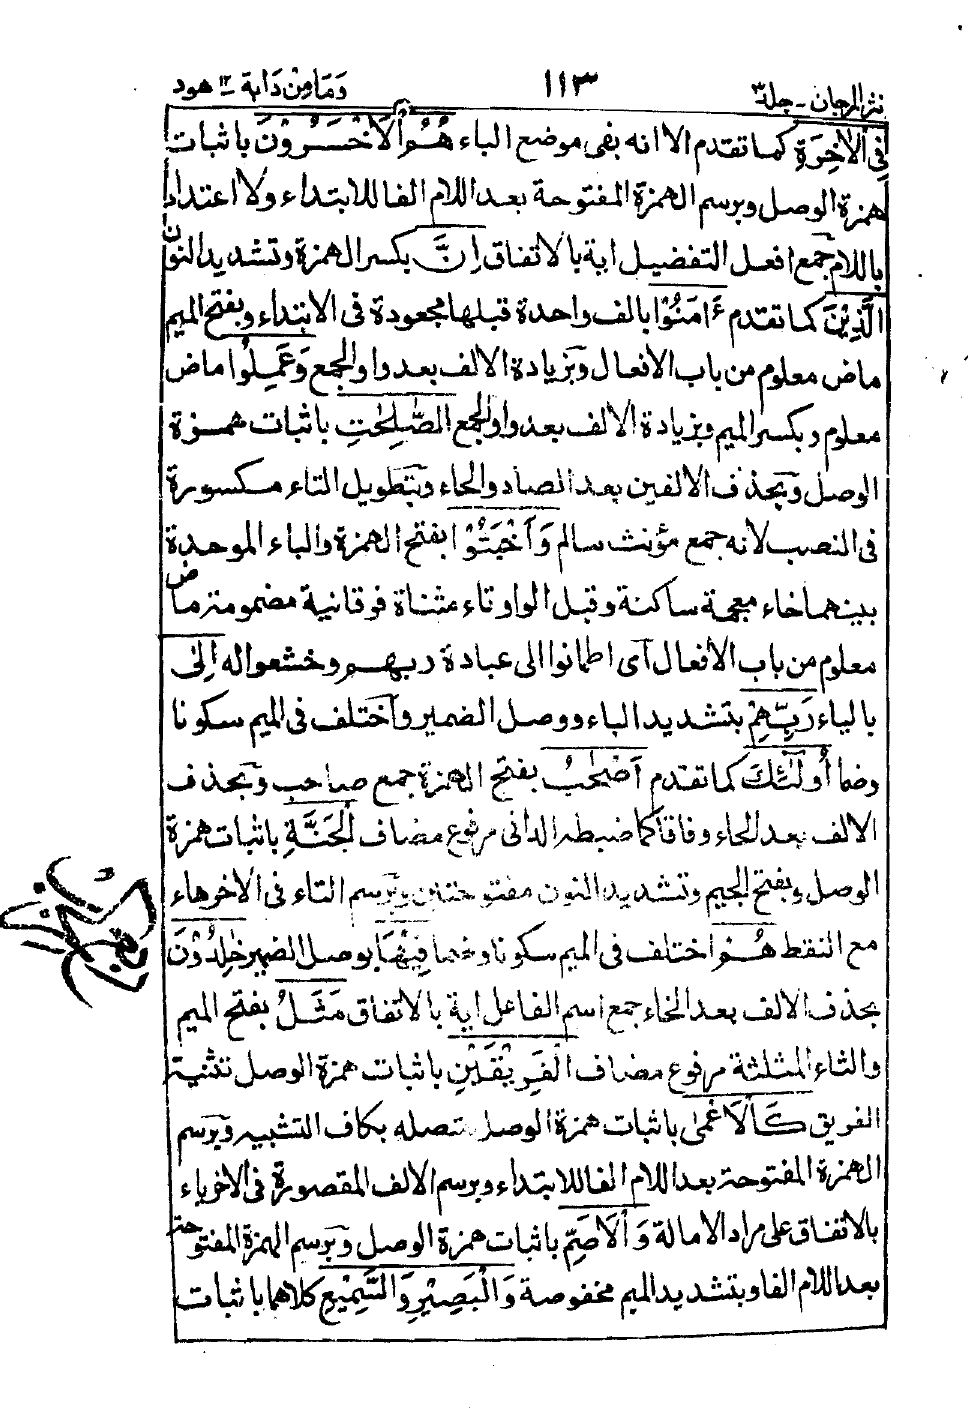 نثر المرجان - جلد ۳ ١١٣ وَمَا مِنْ دَابة ١٢ هود
فِى الْاٰخِرَةِ كما تقدم الا انه بفى موضع الباء هُمُ الْاَخْسَرُوْنَ باثبات
همزة الوصل وبرسم الهمزة المفتوحة بعد اللام الفا للابتداء ولا اعتداد
باللام جمع افعل التفضيل اية بالاتفاق اِنَّ بكسر الهمزة وتشديد النون
الَّذِيْنَ كما تقدم ءَامَنُوْا بالف واحدة قبلها مجعودة فى الابتداء وبفتح الميم
ماض معلوم من باب الافعال وبزيادة الالف بعد واو الجمع وَعَمِلُوا ماض
معلوم وبكسر الميم وبزيادة الالف بعد واو الجمع الصّٰلِحٰتِ باثبات همزة
الوصل وبحذف الالفين بعد الصاد والحاء وبتطويل التاء مكسورة
فى النصب لانه جمع مؤنث سالم وَاَخْبَتُوْا بفتح الهمزة والباء الموحدة
بينهما خاء معجمة ساكنة وقبل الواو تاء مثناة فوقانية مضمومة ماض
معلوم من باب الافعال اى اطمانوا الى عبادة ربهم وخشعوا له اِلٰى
بالياء رَبِّهِمْ بتشديد الباء ووصل الضمير واختلف فى الميم سكونا
وضما اُولٰٓئِكَ كما تقدم اَصْحٰبُ بفتح الهمزة جمع صاحب وبحذف
الالف بعد الحاء وفاقا كما ضبطه الدانى مرفوع مضاف الْجَنَّةِ باثبات همزة
الوصل وبفتح الجيم وتشديد النون مفتوحتين وبرسم التاء فى الاخر هاء
مع النقط هُمْ اختلف فى الميم سكونا وضما فِيْهَا بوصل الضمير خٰلِدُوْنَ
بحذف الالف بعد الخاء جمع اسم الفاعل اية بالاتفاق مَثَلُ بفتح الميم
والثاء المثلثة مرفوع مضاف الْفَرِيْقَيْنِ باثبات همزة الوصل تثنية
الفريق كَالْاَعْمٰى باثبات همزة الوصل متصله بكاف التشبيه وبرسم
الهمزة المفتوحة بعد اللام الفا للابتداء وبرسم الالف المقصورة فى الاخر ياء
بالاتفاق على مراد الامالة وَالْاَصَمِّ باثبات همزة الوصل وبرسم الهمزة المفتوحة
بعد اللام الفا وبتشديد الميم مخفوضة وَالْبَصِيْرِ وَالسَّمِيْعِ كلاهما باثبات